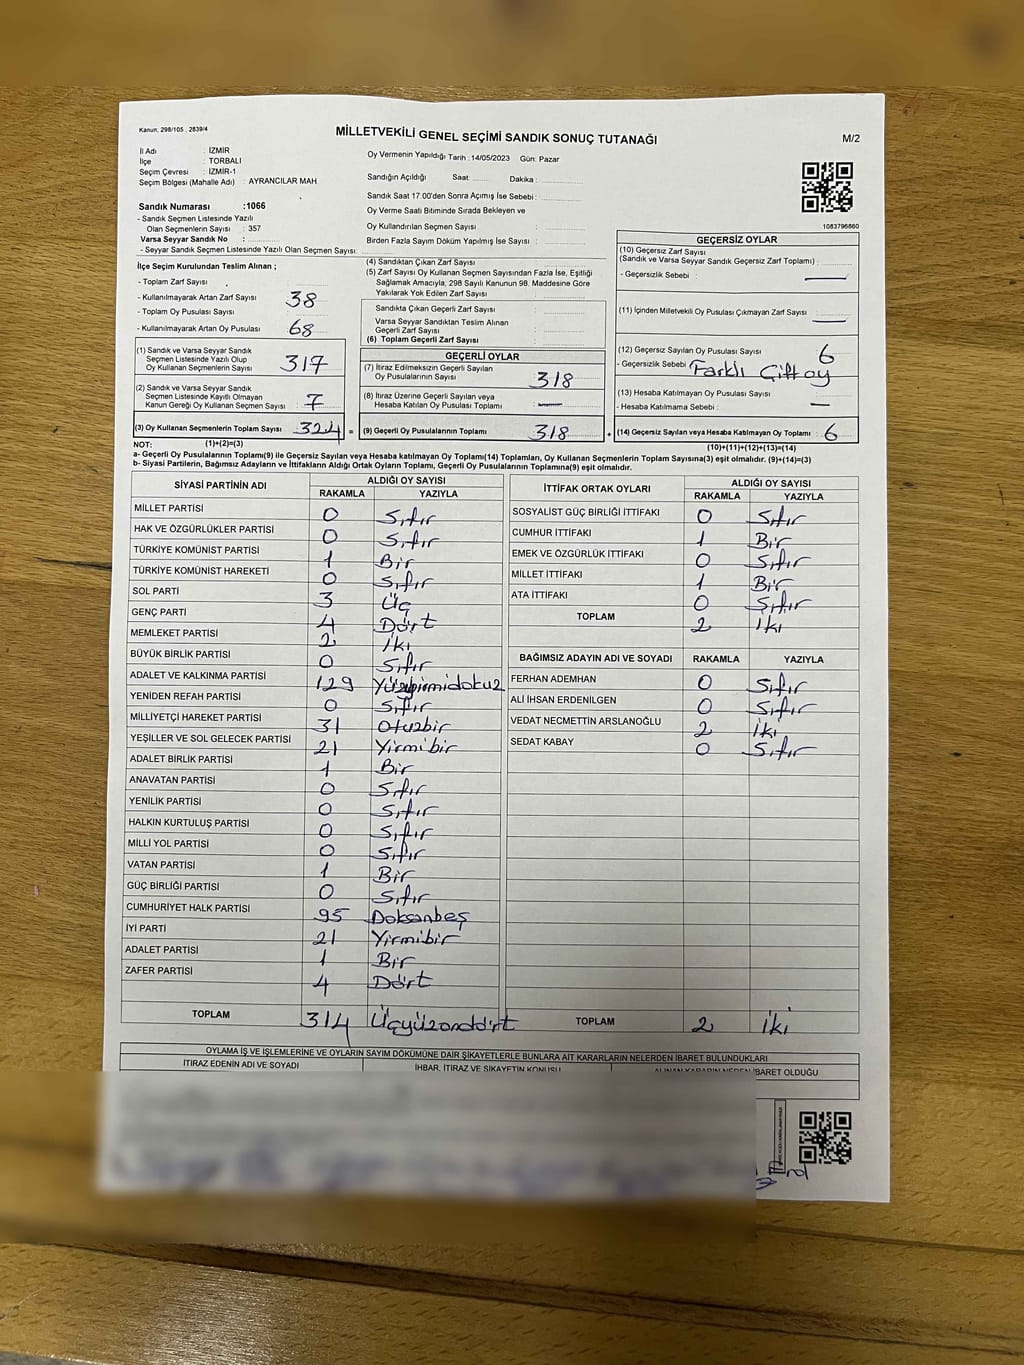 Kanun, 298/105 , 2839/4
MİLLETVEKİLİ GENEL SEÇİMİ SANDIK SONUÇ TUTANAĞI
M/2
İl Adı : İZMİR
İlçe : TORBALI
Seçim Çevresi : İZMİR-1
Seçim Bölgesi (Mahalle Adı) : AYRANCILAR MAH
Oy Vermenin Yapıldığı Tarih :14/05/2023 Gün: Pazar
Sandığın Açıldığı Saat: Dakika :
Sandık Saat 17.00'den Sonra Açımış İse Sebebi :
Oy Verme Saati Bitiminde Sırada Bekleyen ve
Oy Kullandırılan Seçmen Sayısı :
Birden Fazla Sayım Döküm Yapılmış İse Sayısı :
1083796860
Sandık Numarası :1066
- Sandık Seçmen Listesinde Yazılı
Olan Seçmenlerin Sayısı : 357
Varsa Seyyar Sandık No :
- Seyyar Sandık Seçmen Listesinde Yazılı Olan Seçmen Sayısı:
İlçe Seçim Kurulundan Teslim Alınan ;
- Toplam Zarf Sayısı :
- Kullanılmayarak Artan Zarf Sayısı : 38
- Toplam Oy Pusulası Sayısı :
- Kullanılmayarak Artan Oy Pusulası : 68
(1) Sandık ve Varsa Seyyar Sandık
Seçmen Listesinde Yazılı Olup
Oy Kullanan Seçmenlerin Sayısı : 317
(2) Sandık ve Varsa Seyyar Sandık
Seçmen Listesinde Kayıtlı Olmayan
Kanun Gereği Oy Kullanan Seçmen Sayısı : 7
(3) Oy Kullanan Seçmenlerin Toplam Sayısı : 324 =
(4) Sandıktan Çıkan Zarf Sayısı :
(5) Zarf Sayısı Oy Kullanan Seçmen Sayısından Fazla İse, Eşitliği
Sağlamak Amacıyla; 298 Sayılı Kanunun 98. Maddesine Göre
Yakılarak Yok Edilen Zarf Sayısı :
Sandıkta Çıkan Geçerli Zarf Sayısı :
Varsa Seyyar Sandıktan Teslim Alınan
Geçerli Zarf Sayısı :
(6) Toplam Geçerli Zarf Sayısı :
GEÇERLİ OYLAR
(7) İtiraz Edilmeksizin Geçerli Sayılan
Oy Pusulalarının Sayısı : 318
(8) İtiraz Üzerine Geçerli Sayılan veya
Hesaba Katılan Oy Pusulaları Toplamı : —
(9) Geçerli Oy Pusulalarının Toplamı : 318 +
GEÇERSİZ OYLAR
(10) Geçersiz Zarf Sayısı
(Sandık ve Varsa Seyyar Sandık Geçersiz Zarf Toplamı) :
- Geçersizlik Sebebi : —
(11) İçinden Milletvekili Oy Pusulası Çıkmayan Zarf Sayısı : —
(12) Geçersiz Sayılan Oy Pusulası Sayısı : 6
- Geçersizlik Sebebi : Farklı Çift oy
(13) Hesaba Katılmayan Oy Pusulası Sayısı : —
- Hesaba Katılmama Sebebi :
(14) Geçersiz Sayılan veya Hesaba Katılmayan Oy Toplamı : 6
NOT: (1)+(2)=(3)
(10)+(11)+(12)+(13)=(14)
a- Geçerli Oy Pusulalarının Toplamı(9) ile Geçersiz Sayılan veya Hesaba katılmayan Oy Toplamı(14) Toplamları, Oy Kullanan Seçmenlerin Toplam Sayısına(3) eşit olmalıdır. (9)+(14)=(3)
b- Siyasi Partilerin, Bağımsız Adayların ve İttifakların Aldığı Ortak Oyların Toplamı, Geçerli Oy Pusulalarının Toplamına(9) eşit olmalıdır.
SİYASİ PARTİNİN ADI
ALDIĞI OY SAYISI
RAKAMLA YAZIYLA
MİLLET PARTİSİ 0 Sıfır
HAK VE ÖZGÜRLÜKLER PARTİSİ 0 Sıfır
TÜRKİYE KOMÜNİST PARTİSİ 1 Bir
TÜRKİYE KOMÜNİST HAREKETİ 0 Sıfır
SOL PARTİ 3 Üç
GENÇ PARTİ 4 Dört
MEMLEKET PARTİSİ 2 İki
BÜYÜK BİRLİK PARTİSİ 0 Sıfır
ADALET VE KALKINMA PARTİSİ 129 Yüzyirmidokuz
YENİDEN REFAH PARTİSİ 0 Sıfır
MİLLİYETÇİ HAREKET PARTİSİ 31 Otuzbir
YEŞİLLER VE SOL GELECEK PARTİSİ 21 Yirmibir
ADALET BİRLİK PARTİSİ 1 Bir
ANAVATAN PARTİSİ 0 Sıfır
YENİLİK PARTİSİ 0 Sıfır
HALKIN KURTULUŞ PARTİSİ 0 Sıfır
MİLLİ YOL PARTİSİ 0 Sıfır
VATAN PARTİSİ 1 Bir
GÜÇ BİRLİĞİ PARTİSİ 0 Sıfır
CUMHURİYET HALK PARTİSİ 95 Doksanbeş
İYİ PARTİ 21 Yirmibir
ADALET PARTİSİ 1 Bir
ZAFER PARTİSİ 4 Dört
TOPLAM 314 Üçyüzondört
İTTİFAK ORTAK OYLARI
ALDIĞI OY SAYISI
RAKAMLA YAZIYLA
SOSYALİST GÜÇ BİRLİĞİ İTTİFAKI 0 Sıfır
CUMHUR İTTİFAKI 1 Bir
EMEK VE ÖZGÜRLÜK İTTİFAKI 0 Sıfır
MİLLET İTTİFAKI 1 Bir
ATA İTTİFAKI 0 Sıfır
TOPLAM 2 İki
BAĞIMSIZ ADAYIN ADI VE SOYADI RAKAMLA YAZIYLA
FERHAN ADEMHAN 0 Sıfır
ALİ İHSAN ERDENİLGEN 0 Sıfır
VEDAT NECMETTİN ARSLANOĞLU 2 İki
SEDAT KABAY 0 Sıfır
TOPLAM 2 İki
OYLAMA İŞ VE İŞLEMLERİNE VE OYLARIN SAYIM DÖKÜMÜNE DAİR ŞİKAYETLERLE BUNLARA AİT KARARLARIN NELERDEN İBARET BULUNDUKLARI
İTİRAZ EDENİN ADI VE SOYADI
İHBAR, İTİRAZ VE ŞİKAYETİN KONUSU
ALINAN KARARIN NEDEN İBARET OLDUĞU